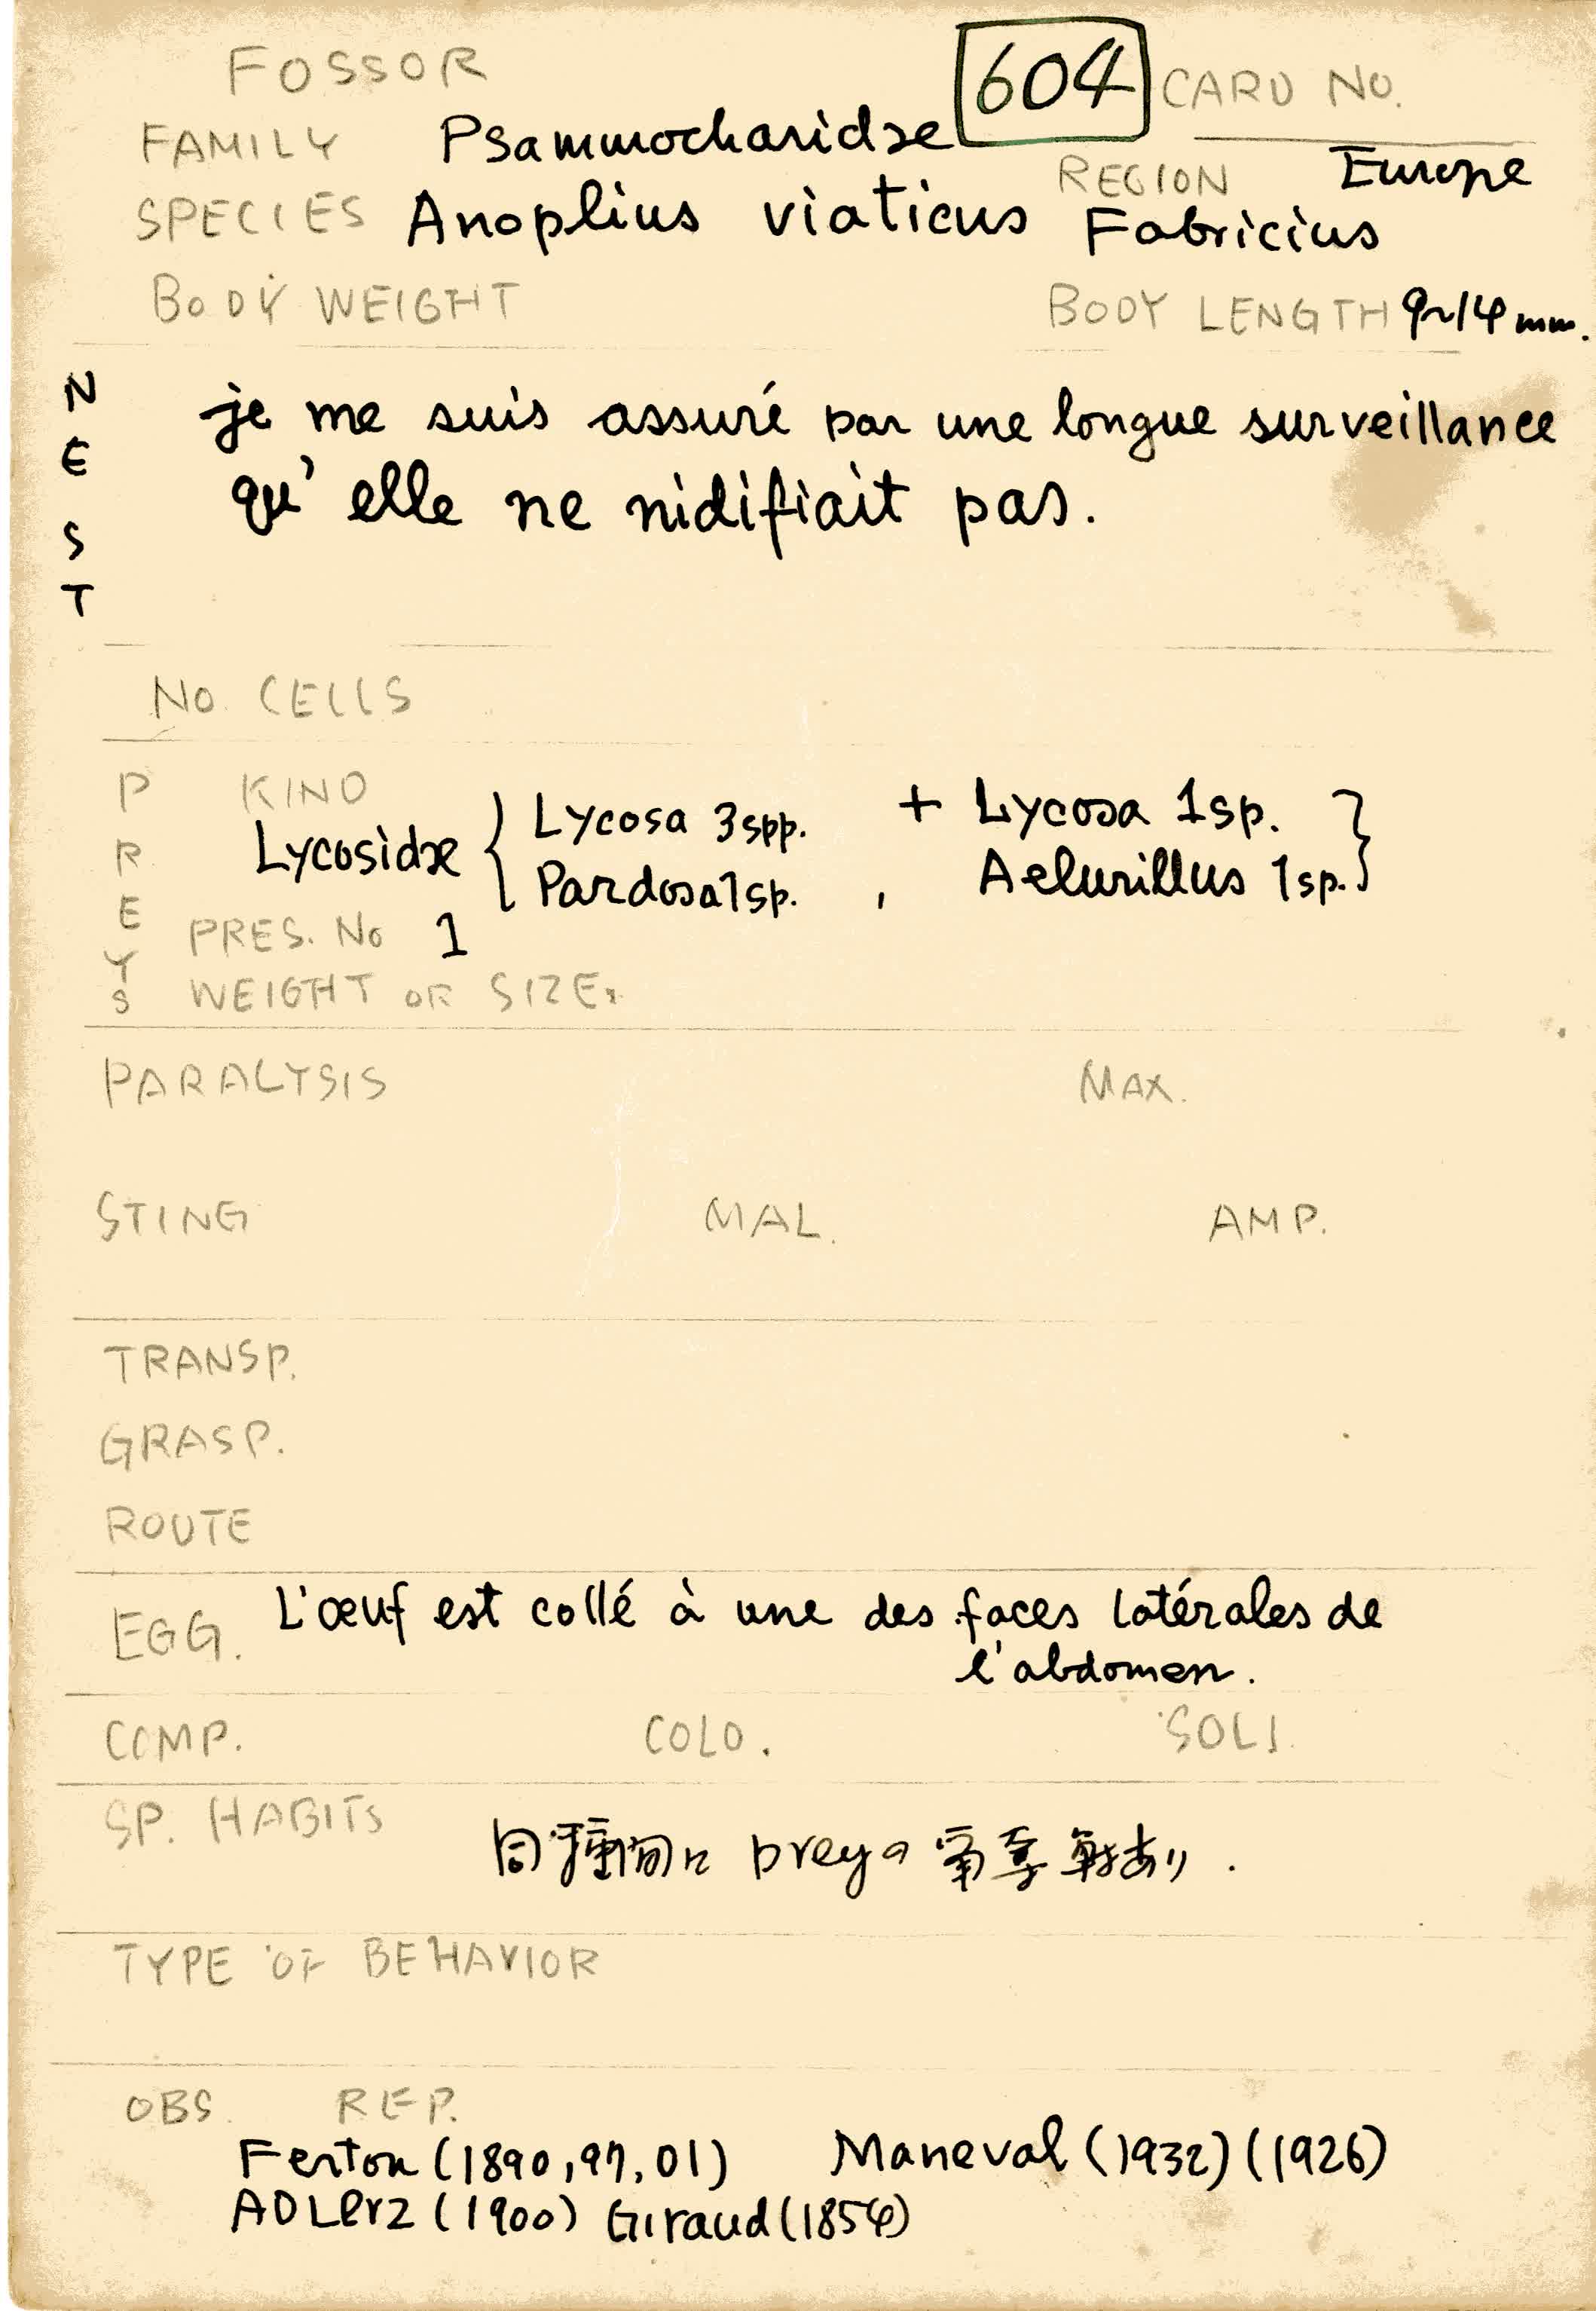 FOSSOR 604 CARD No.
FAMILY Psammocharidae REGION Europe
SPECIES Anoplius viaticus Fabricius
BODY WEIGHT BODY LENGTH 9~14mm.
NEST je me suis assuré par une longue surveillance
qu'elle ne nidifiait pas.
No. CELLS
PREYS KIND
Lycosidae { Lycosa 3spp. + Lycosa 1sp. }
Pardosa 1sp. , Aelurillus 1sp.
PRES. No 1
WEIGHT OR SIZE.
PARALYSIS MAX.
STING MAL. AMP.
TRANSP.
GRASP.
ROUTE
EGG. L'œuf est collé à une des faces latérales de
l'abdomen.
COMP. COLO. SOLI.
SP. HABITS
同種間に preyの争奪戦あり.
TYPE OF BEHAVIOR
OBS. REP.
Ferton (1890, 97, 01) Maneval (1932) (1926)
ADLerz (1900) Giraud (1854)